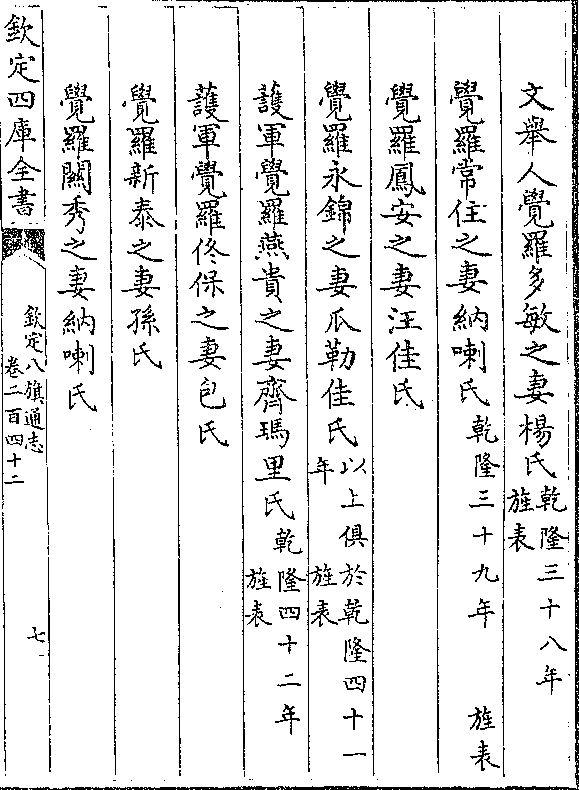 文舉人覺羅多敏之妻楊氏乾隆三十八年旌表
覺羅常住之妻納喇氏乾隆三十九年旌表
覺羅鳳安之妻汪佳氏
覺羅永錦之妻瓜勒佳氏以上俱於乾隆四十一年旌表
護軍覺羅燕貴之妻齊瑪里氏乾隆四十二年旌表
護軍覺羅佟保之妻包氏
覺羅新泰之妻孫氏
覺羅關秀之妻納喇氏
欽定四庫全書
欽定八旗通志
卷二百四十二
七